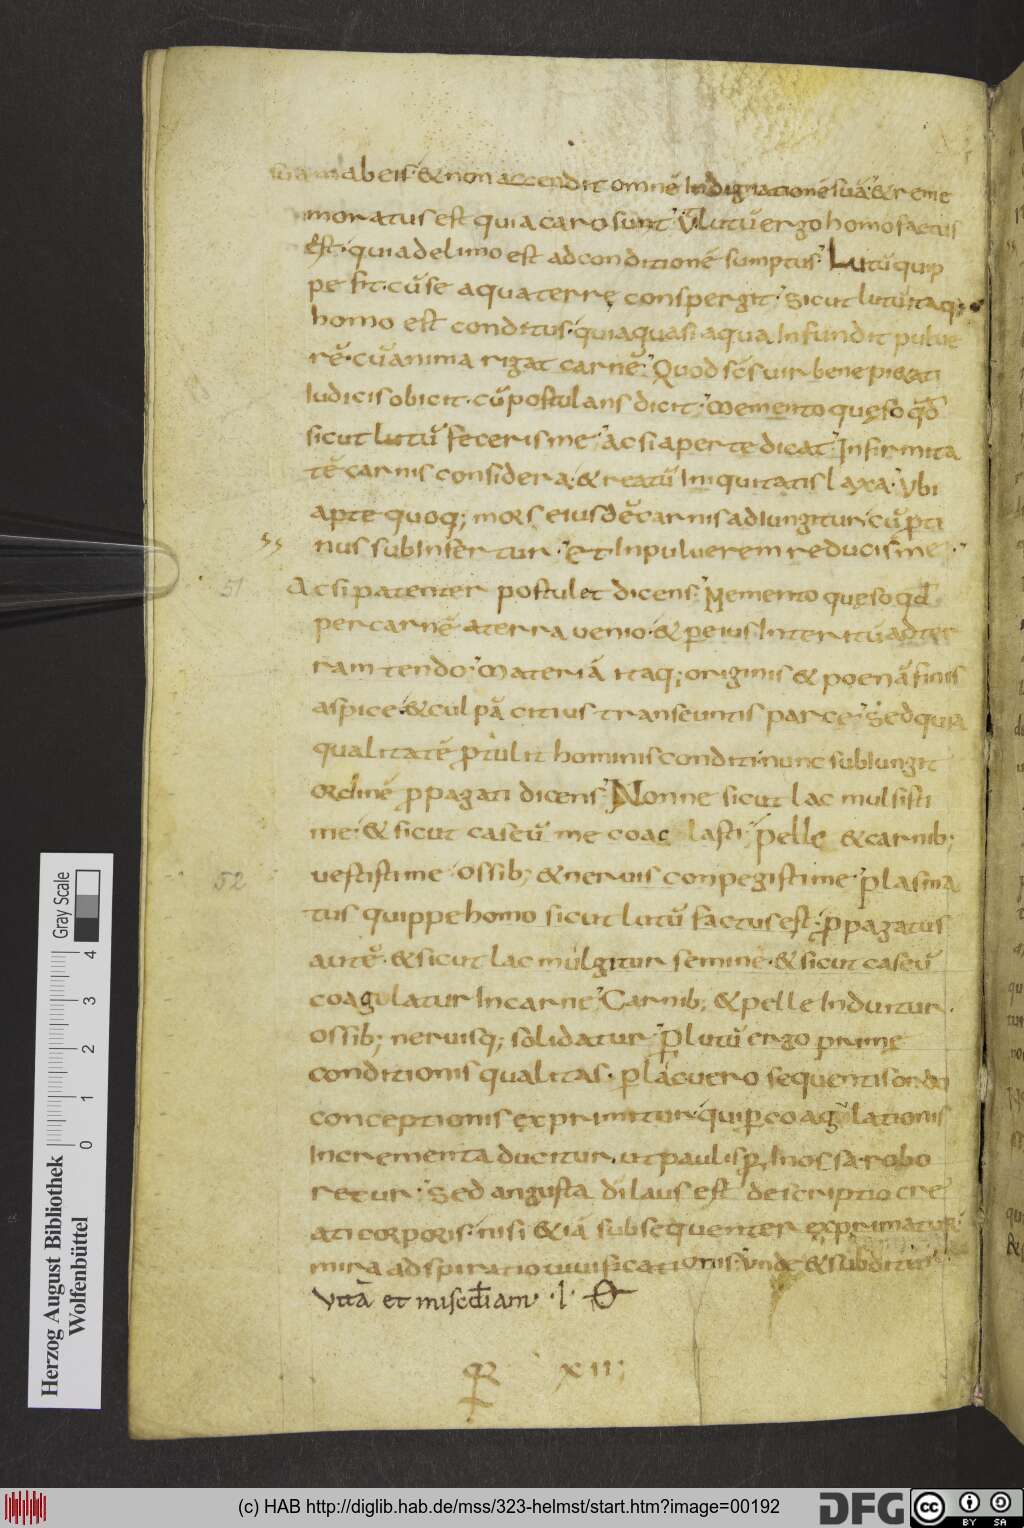 suam ab eis· & non accendit omnē Indignationē suā· & reme
moratus est quia caro sunt· Vt lutū ergo homo factus
est· quia de limo est ad conditionē sumptus· Lutū quip
pe fit· cū se aqua terrę conspergit· Sicut lutū itaq;
homo est conditus· quia quasi aqua Infundit pulue
rē· cū anima rigat carnē· Quod scs uir bene pietati
Iudicis obicit· cū postulans dicit· Memento quęso qđ
sicut lutū feceris me· ac si aperte dicat· Infirmita
tē carnis considera· & reatū Iniquitatis laxa· Vbi
apte quoq; mors eiusdē carnis adIungitur· cū p̄ti
nus subInfertur· Et In puluerem reducis me·
51 Ac si patenter postulet dicens· Memento quęso qđ
per carnē a terra uenio· & p eius Interitū ad ter
ram tendo· Materiā itaq; originis & poenā finis
aspice· & culpā citius transeuntis parce· Sed quia
qualitatē p̄tulit hominis conditi· nunc subIungit
ordinē p̄pagati dicens· Nonne sicut lac mulsisti
me· & sicut caseū me coac lasti· pelle & carnib;
52 uestisti me· Ossib; & neruis conpegisti me· plasma
tus quippe homo sicut lutū factus est· p̄pagatus
autē· & sicut lac mulgitur semine· & sicut caseū
coagulatur In carne· Carnib; & pelle Induitur·
Ossib; neruisq; solidatur· P lutū ergo prime
conditionis qualitas· p lac uero sequentis ordo
conceptionis exprimitur· qui p coagulationis
Incrementa ducitur ut paulisp In ossa robo
retur· Sed angusta di laus est descriptio cre
ati corporis· nisi & iā subsequenter exprimatur
mira adspiratio uiuificationis· Vnde & subditur·
Vitā et miscđiam· ·l·
XII;
Gray Scale
4
3
2
1
0
Herzog August Bibliothek
Wolfenbüttel
(c) HAB http://diglib.hab.de/mss/323-helmst/start.htm?image=00192
DFG
cc
BY SA